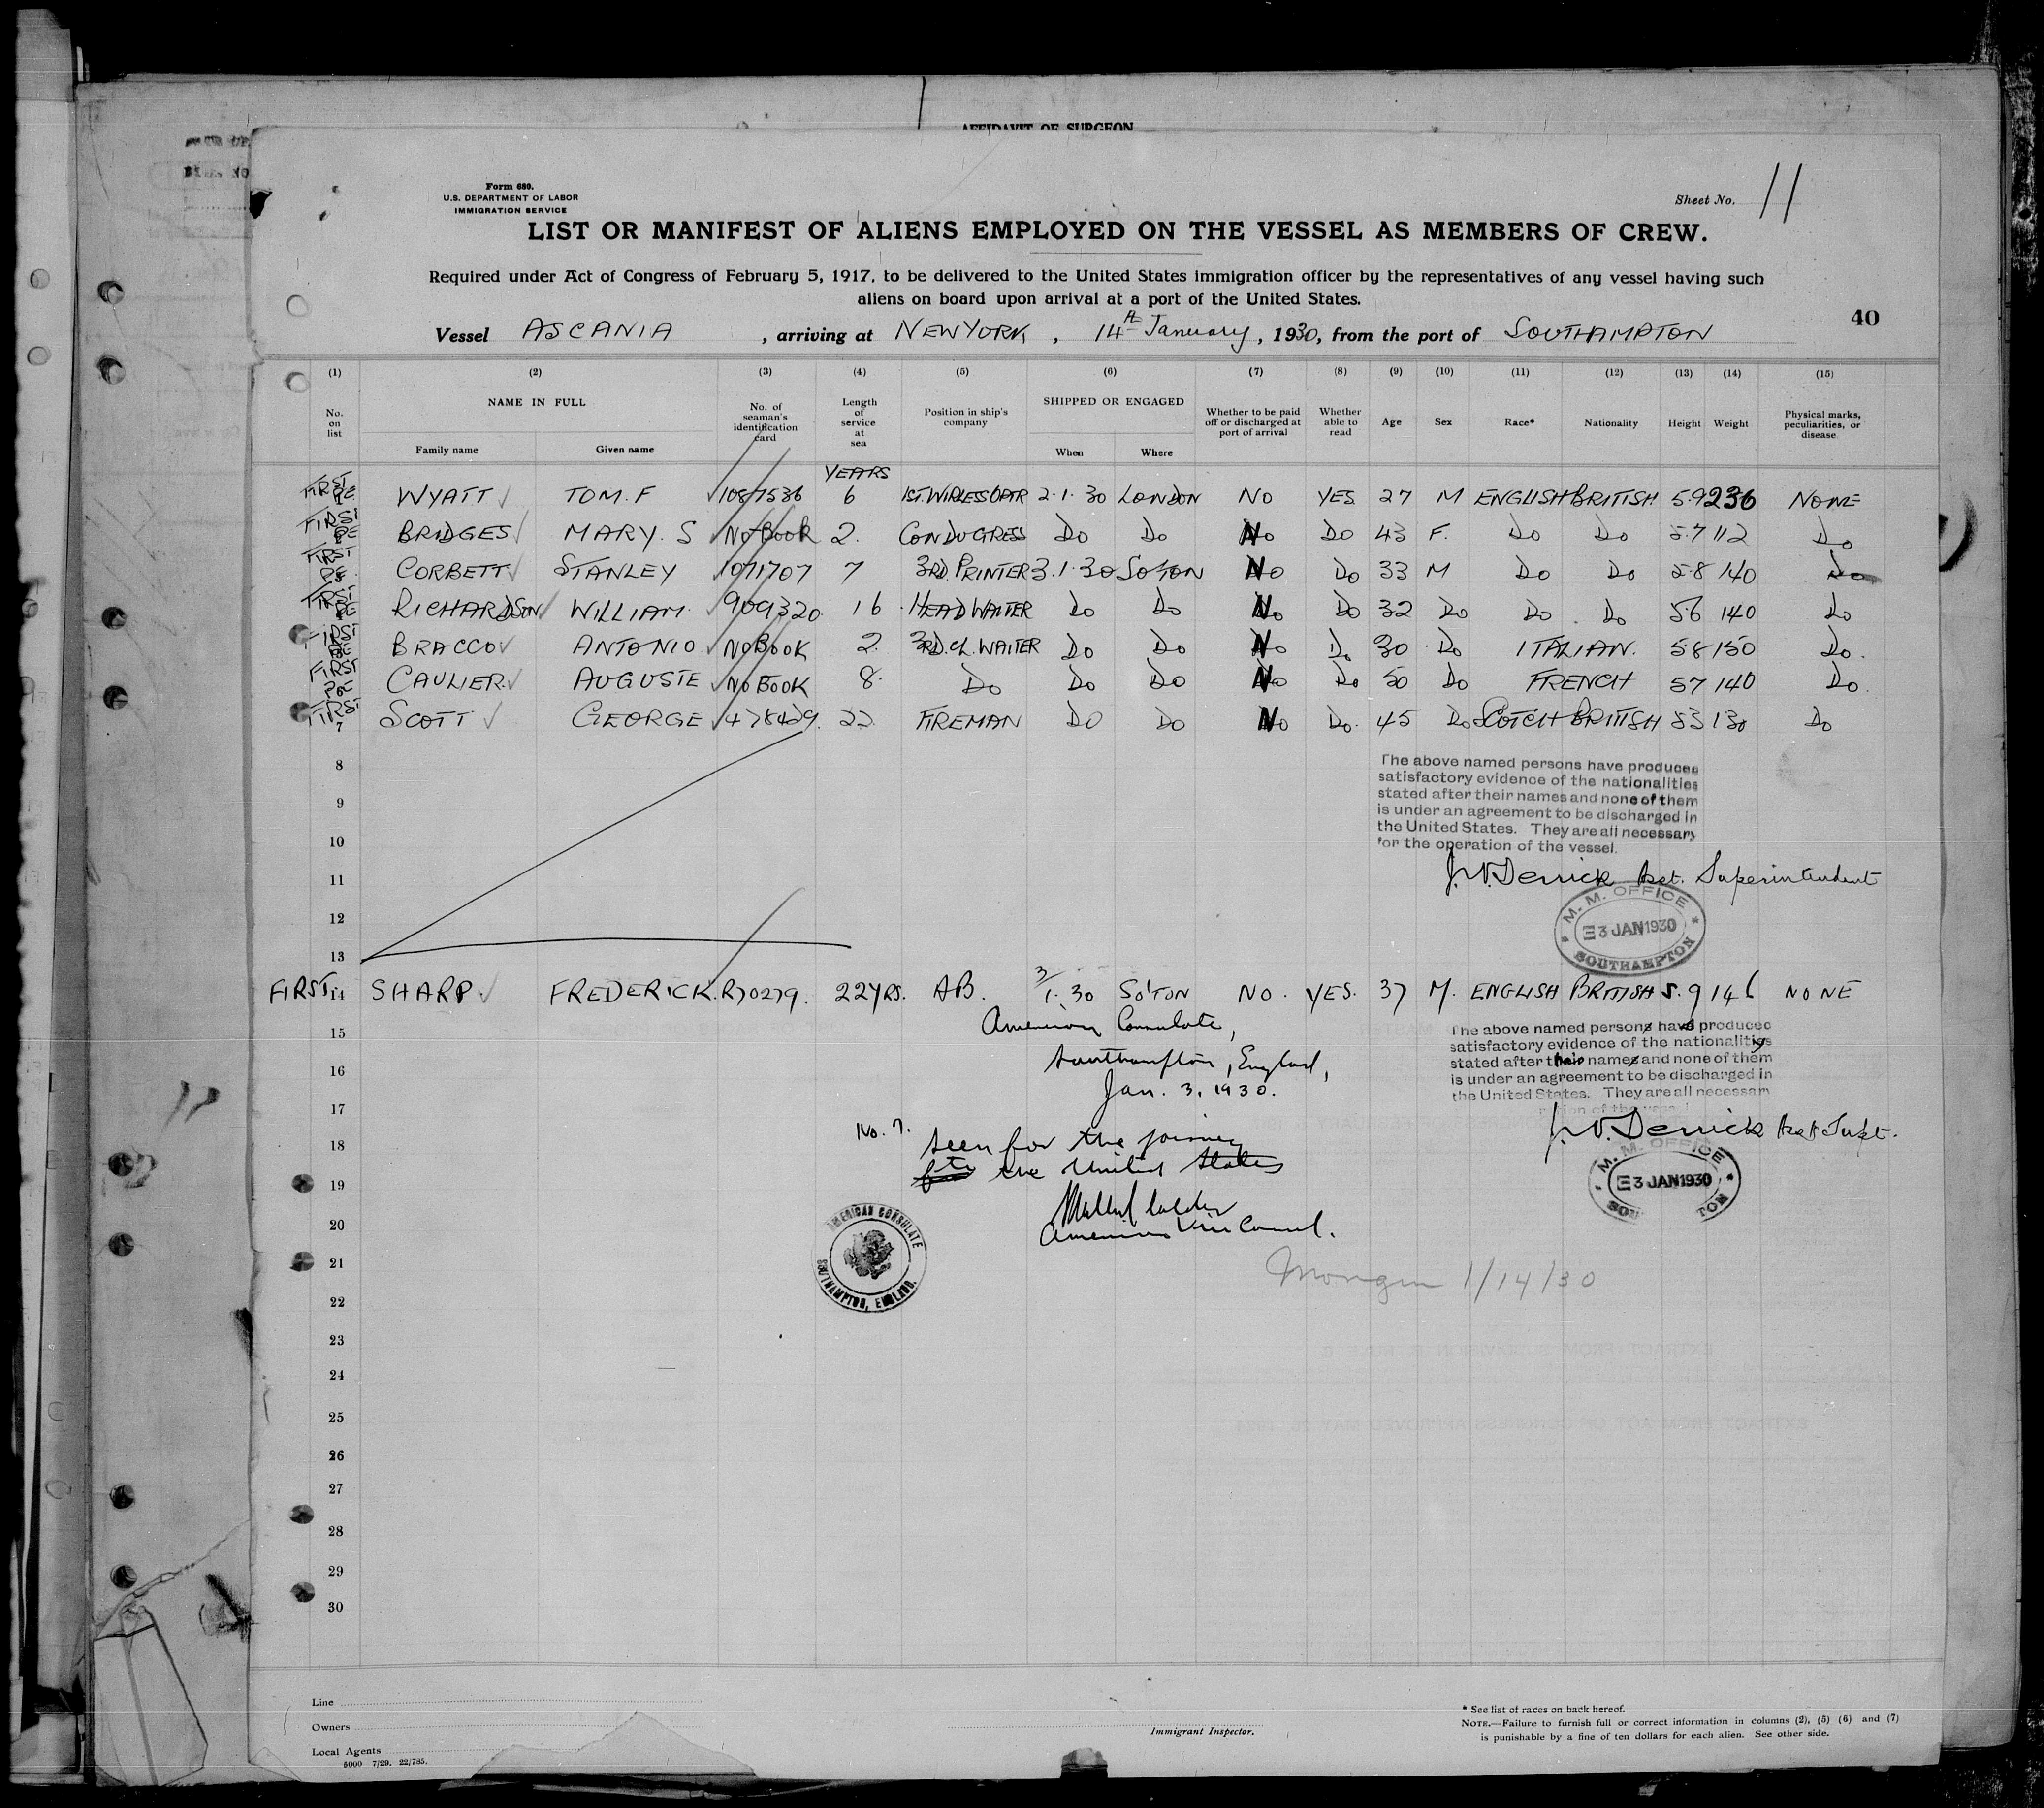 AFFIDAVIT OF SURGEON
Form 680.
U.S. DEPARTMENT OF LABOR
IMMIGRATION SERVICE
Sheet No. 11
LIST OR MANIFEST OF ALIENS EMPLOYED ON THE VESSEL AS MEMBERS OF CREW.
Required under Act of Congress of February 5, 1917, to be delivered to the United States immigration officer by the representatives of any vessel having such
aliens on board upon arrival at a port of the United States.
40
Vessel ASCANIA , arriving at NEW YORK , 14th January , 1930, from the port of SOUTHAMPTON
(1) (2) (3) (4) (5) (6) (7) (8) (9) (10) (11) (12) (13) (14) (15)
No. on list NAME IN FULL Family name Given name No. of seaman's identification card Length of service at sea Position in ship's company SHIPPED OR ENGAGED When Where Whether to be paid off or discharged at port of arrival Whether able to read Age Sex Race* Nationality Height Weight Physical marks, peculiarities, or disease
YEARS
FIRST WYATT TOM. F 1087536 6 1ST. WIRLESS OPTR 2.1.30 LONDON NO YES 27 M ENGLISH BRITISH 5.9 236 NONE
FIRST BRIDGES MARY. S NO BOOK 2. CONDUCTRESS DO DO NO DO 43 F. DO DO 5.7 112 DO
FIRST CORBETT STANLEY 1071707 7 3RD. PRINTER 3.1.30 SO'TON NO DO 33 M DO DO 5.8 140 DO
FIRST RICHARDSON WILLIAM. 909320. 16 HEAD WAITER DO DO NO DO 32 DO DO DO 5.6 140 DO
FIRST BRACCO ANTONIO NO BOOK 2. 3RD. CL. WAITER DO DO NO DO 30 DO ITALIAN. 5.8 150 DO.
FIRST CAULIER. AUGUSTE NO BOOK 8. DO DO DO NO DO 50 DO FRENCH 5.7 140 DO.
FIRST 7 SCOTT GEORGE 478429. 22 FIREMAN DO DO NO DO. 45 DO SCOTCH BRITISH 5.3 130 DO
8
The above named persons have produced
satisfactory evidence of the nationalities
stated after their names and none of them
9
is under an agreement to be discharged in
the United States. They are all necessary
10
for the operation of the vessel.
11
J.W. Derrick Asst. Superintendent
12
M. M. OFFICE
E 3 JAN 1930
SOUTHAMPTON
13
FIRST 14 SHARP FREDERICK. R70279. 22 YRS. AB. 3/1.30 SO'TON NO. YES. 37 M. ENGLISH BRITISH 5.9 146 NONE
15
American Consulate,
Southampton, England,
Jan. 3, 1930.
The above named persons have produced
satisfactory evidence of the nationalities
stated after their names and none of them
is under an agreement to be discharged in
the United States. They are all necessary
16
17
J.W. Derrick Asst Supt.
M. M. OFFICE
E 3 JAN 1930
No. 7.
Seen for the journey
18
to the United States
19
20
American Vice Consul.
AMERICAN CONSULATE
SOUTHAMPTON, ENGLAND.
21
1/14/30
22
23
24
25
26
27
28
29
30
Line
Owners
Local Agents
5000 7/29. 22/785.
Immigrant Inspector.
* See list of races on back hereof.
NOTE.—Failure to furnish full or correct information in columns (2), (5) (6) and (7)
is punishable by a fine of ten dollars for each alien. See other side.